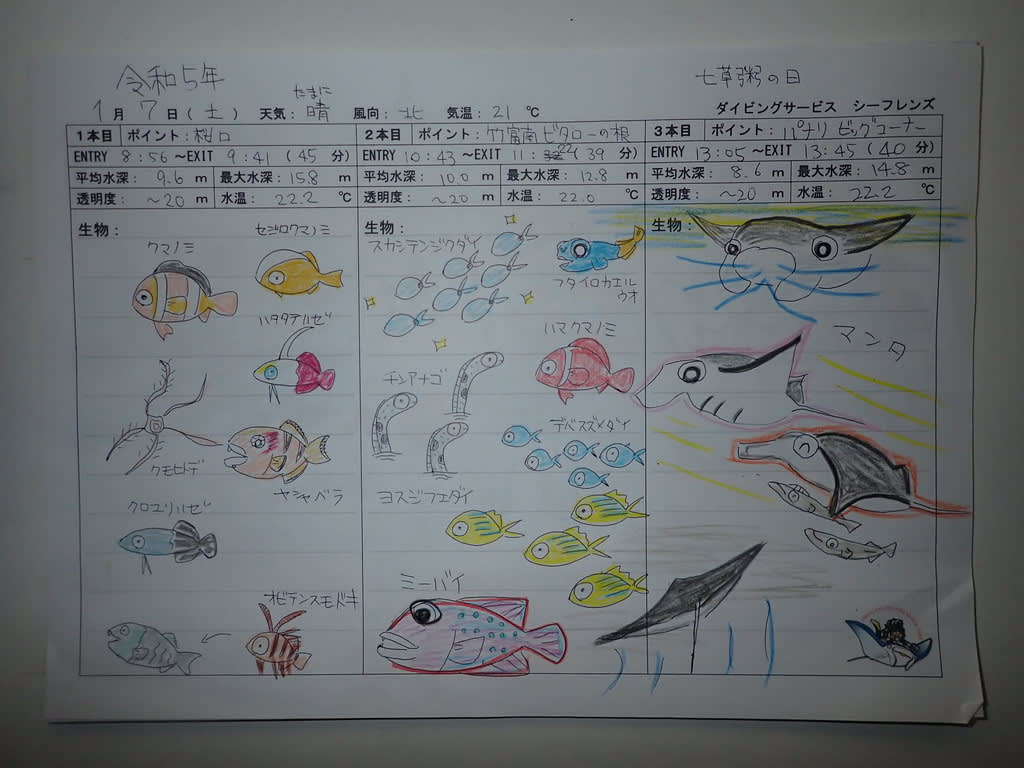 令和5年
七草粥の日
たまに
1月7日(土) 天気:晴 風向:北 気温:21℃ ダイビングサービス シーフレンズ
1本目 ポイント:桜口
ENTRY 8:56~EXIT 9:41(45分)
平均水深:9.6m 最大水深:15.8m
透明度:~20m 水温:22.2℃
生物:
クマノミ
セジロクマノミ
ハタタテハゼ
クモヒトデ
ヤシャベラ
クロユリハゼ
オビテンスモドキ
2本目 ポイント:竹富南ビタローの根
ENTRY 10:43~EXIT 11:22(39分)
平均水深:10.0m 最大水深:12.8m
透明度:~20m 水温:22.0℃
生物:
スカシテンジクダイ
フタイロカエル
ウオ
ハマクマノミ
チンアナゴ
デバスズメダイ
ヨスジフエダイ
ミーバイ
3本目 ポイント:パナリ ビッグコーナー
ENTRY 13:05~EXIT 13:45(40分)
平均水深:8.6m 最大水深:14.8m
透明度:~20m 水温:22.2℃
生物:
マンタ